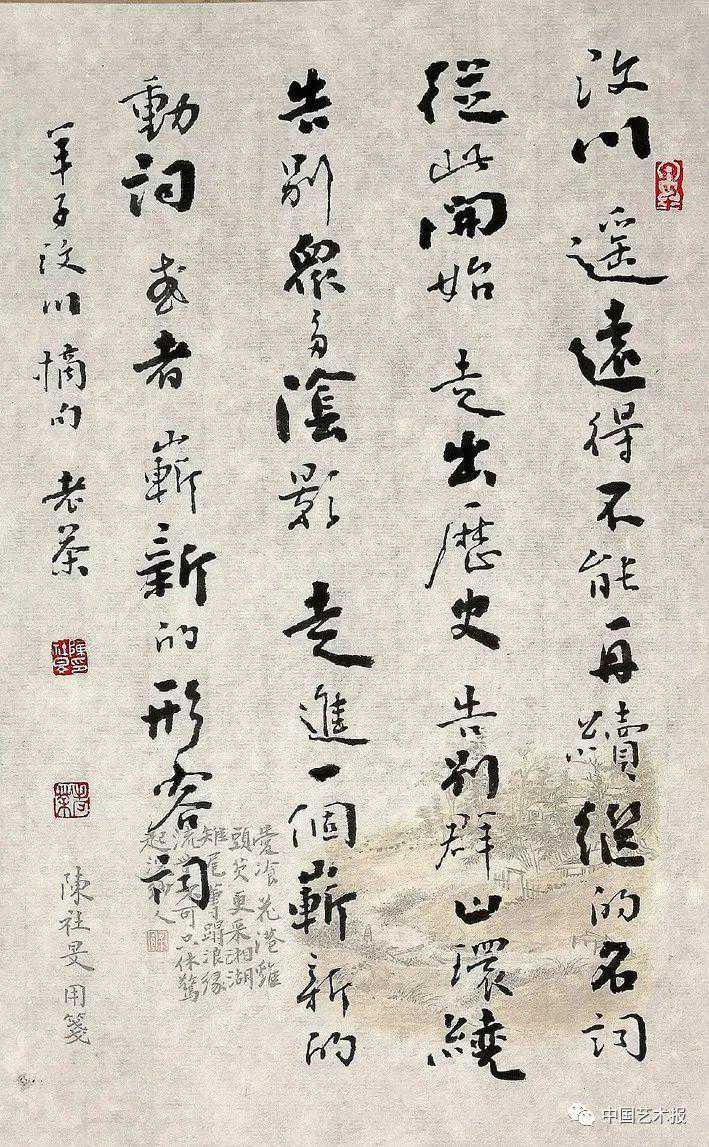 汶川 遥遠得不能再續继的名詞
從此開始 走出歷史 告别群山環繞
告别眾多陰影 走進一個嶄新的
動詞 或者 嶄新的形容詞
羊子汶川摘句 老茶
陳社旻用箋
中国艺术报